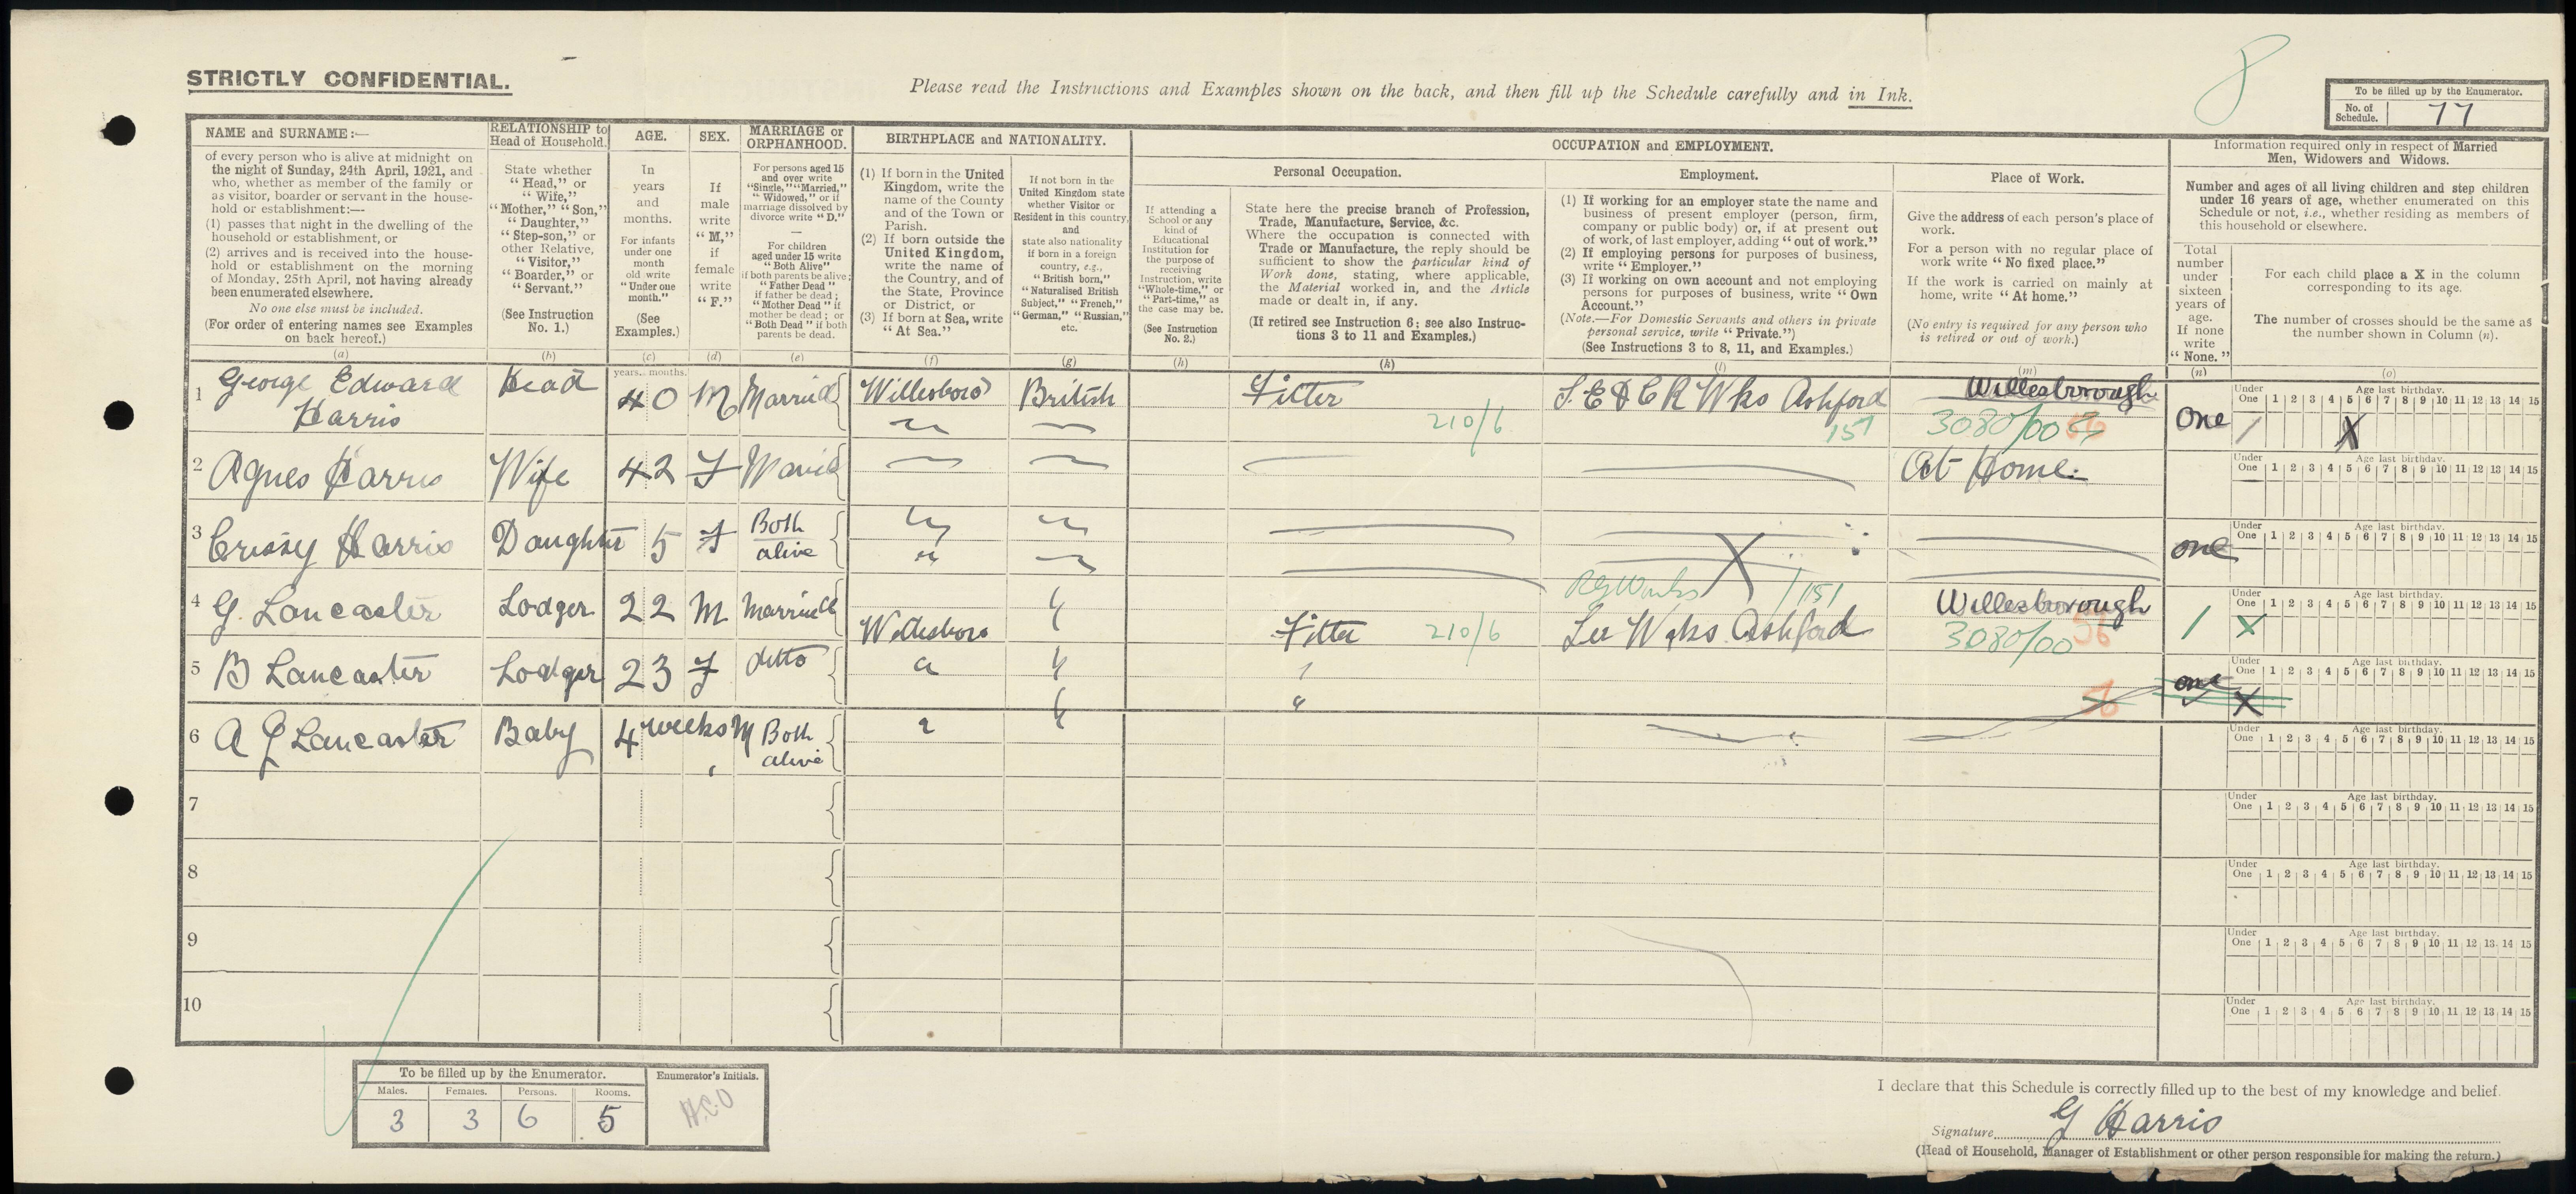 STRICTLY CONFIDENTIAL.
Please read the Instructions and Examples shown on the back, and then fill up the Schedule carefully and in Ink.
To be filled up by the Enumerator.
No. of Schedule. 77
8
NAME and SURNAME:—
of every person who is alive at midnight on
the night of Sunday, 24th April, 1921, and
who, whether as member of the family or
as visitor, boarder or servant in the house-
hold or establishment:—
(1) passes that night in the dwelling of the
household or establishment, or
(2) arrives and is received into the house-
hold or establishment on the morning
of Monday, 25th April, not having already
been enumerated elsewhere.
No one else must be included.
(For order of entering names see Examples
on back hereof.)
(a)
RELATIONSHIP to
Head of Household.
State whether
"Head," or
"Wife,"
"Mother," "Son,"
"Daughter,"
"Step-son," or
other Relative,
"Visitor,"
"Boarder," or
"Servant."
(See Instruction
No. 1.)
(b)
AGE.
In
years
and
months.
For infants
under one
month
old write
"Under one
month."
(See
Examples.)
(c)
SEX.
If
male
write
"M,"
if
female
write
"F."
(d)
MARRIAGE or
ORPHANHOOD.
For persons aged 15
and over write
"Single," "Married,"
"Widowed," or if
marriage dissolved by
divorce write "D."
For children
aged under 15 write
"Both Alive"
if both parents be alive;
"Father Dead"
if father be dead;
"Mother Dead" if
mother be dead; or
"Both Dead" if both
parents be dead.
(e)
BIRTHPLACE and NATIONALITY.
(1) If born in the United
Kingdom, write the
name of the County
and of the Town or
Parish.
(2) If born outside the
United Kingdom,
write the name of
the Country, and of
the State, Province
or District, or
(3) If born at Sea, write
"At Sea."
(f)
If not born in the
United Kingdom state
whether Visitor or
Resident in this country,
and
state also nationality
if born in a foreign
country, e.g.,
"British born,"
"Naturalised British
Subject," "French,"
"German," "Russian,"
etc.
(g)
OCCUPATION and EMPLOYMENT.
If attending a
School or any
kind of
Educational
Institution for
the purpose of
receiving
Instruction, write
"Whole-time," or
"Part-time," as
the case may be.
(See Instruction
No. 2.)
(h)
Personal Occupation.
State here the precise branch of Profession,
Trade, Manufacture, Service, &c.
Where the occupation is connected with
Trade or Manufacture, the reply should be
sufficient to show the particular kind of
Work done, stating, where applicable,
the Material worked in, and the Article
made or dealt in, if any.
(If retired see Instruction 6; see also Instruc-
tions 3 to 11 and Examples.)
(k)
Employment.
(1) If working for an employer state the name and
business of present employer (person, firm,
company or public body) or, if at present out
of work, of last employer, adding "out of work."
(2) If employing persons for purposes of business,
write "Employer."
(3) If working on own account and not employing
persons for purposes of business, write "Own
Account."
(Note.—For Domestic Servants and others in private
personal service, write "Private.")
(See Instructions 3 to 8, 11, and Examples.)
(l)
Place of Work.
Give the address of each person's place of
work.
For a person with no regular place of
work write "No fixed place."
If the work is carried on mainly at
home, write "At home."
(No entry is required for any person who
is retired or out of work.)
(m)
Information required only in respect of Married
Men, Widowers and Widows.
Number and ages of all living children and step children
under 16 years of age, whether enumerated on this
Schedule or not, i.e., whether residing as members of
this household or elsewhere.
Total
number
under
sixteen
years of
age.
If none
write
"None."
(n)
For each child place a X in the column
corresponding to its age.
The number of crosses should be the same as
the number shown in Column (n).
(o)
years. months.
Under One Age last birthday. 1 2 3 4 5 6 7 8 9 10 11 12 13 14 15
1 George Edward Harris Head 40 M Married Willesboro British Fitter 210/6 S.E & C R Wks Ashford 151 Willesborough 3080/00 One X
2 Agnes Harris Wife 42 F Married At Home.
Under One Age last birthday. 1 2 3 4 5 6 7 8 9 10 11 12 13 14 15
3 Crissy Harris Daughter 5 F Both alive X one
Under One Age last birthday. 1 2 3 4 5 6 7 8 9 10 11 12 13 14 15
4 G. Lancaster Lodger 22 M Married Willesboro Fitter 210/6 Ry Works /151 Wks Ashford Willesborough 3080/00 56 1 X
Under One Age last birthday. 1 2 3 4 5 6 7 8 9 10 11 12 13 14 15
5 B Lancaster Lodger 23 F ditto one X
Under One Age last birthday. 1 2 3 4 5 6 7 8 9 10 11 12 13 14 15
6 A G Lancaster Baby 4 weeks M Both alive
Under One Age last birthday. 1 2 3 4 5 6 7 8 9 10 11 12 13 14 15
7
Under One Age last birthday. 1 2 3 4 5 6 7 8 9 10 11 12 13 14 15
8
Under One Age last birthday. 1 2 3 4 5 6 7 8 9 10 11 12 13 14 15
9
Under One Age last birthday. 1 2 3 4 5 6 7 8 9 10 11 12 13 14 15
10
Under One Age last birthday. 1 2 3 4 5 6 7 8 9 10 11 12 13 14 15
To be filled up by the Enumerator.
Males. Females. Persons. Rooms.
3 3 6 5
Enumerator's Initials.
H.C.O
I declare that this Schedule is correctly filled up to the best of my knowledge and belief.
Signature G Harris
(Head of Household, Manager of Establishment or other person responsible for making the return.)